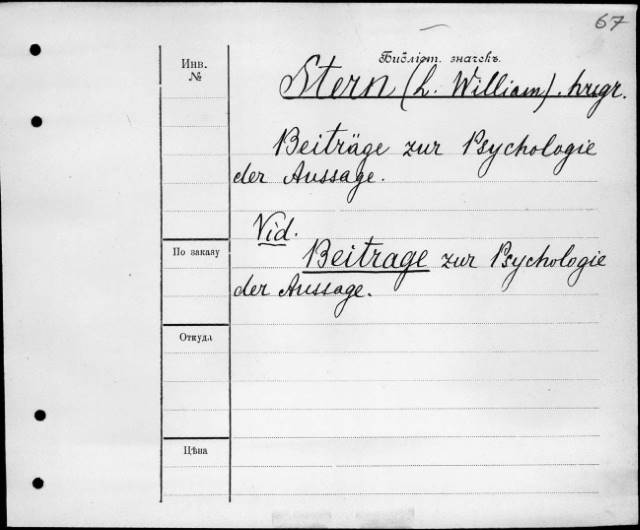 67
Библіот. значекъ.
Инв.
№
Stern (L. William). hrsgr.
Beiträge zur Psychologie
der Aussage.
Vid.
По заказу
Beitrage zur Psychologie
der Aussage.
Откуда
Цѣна